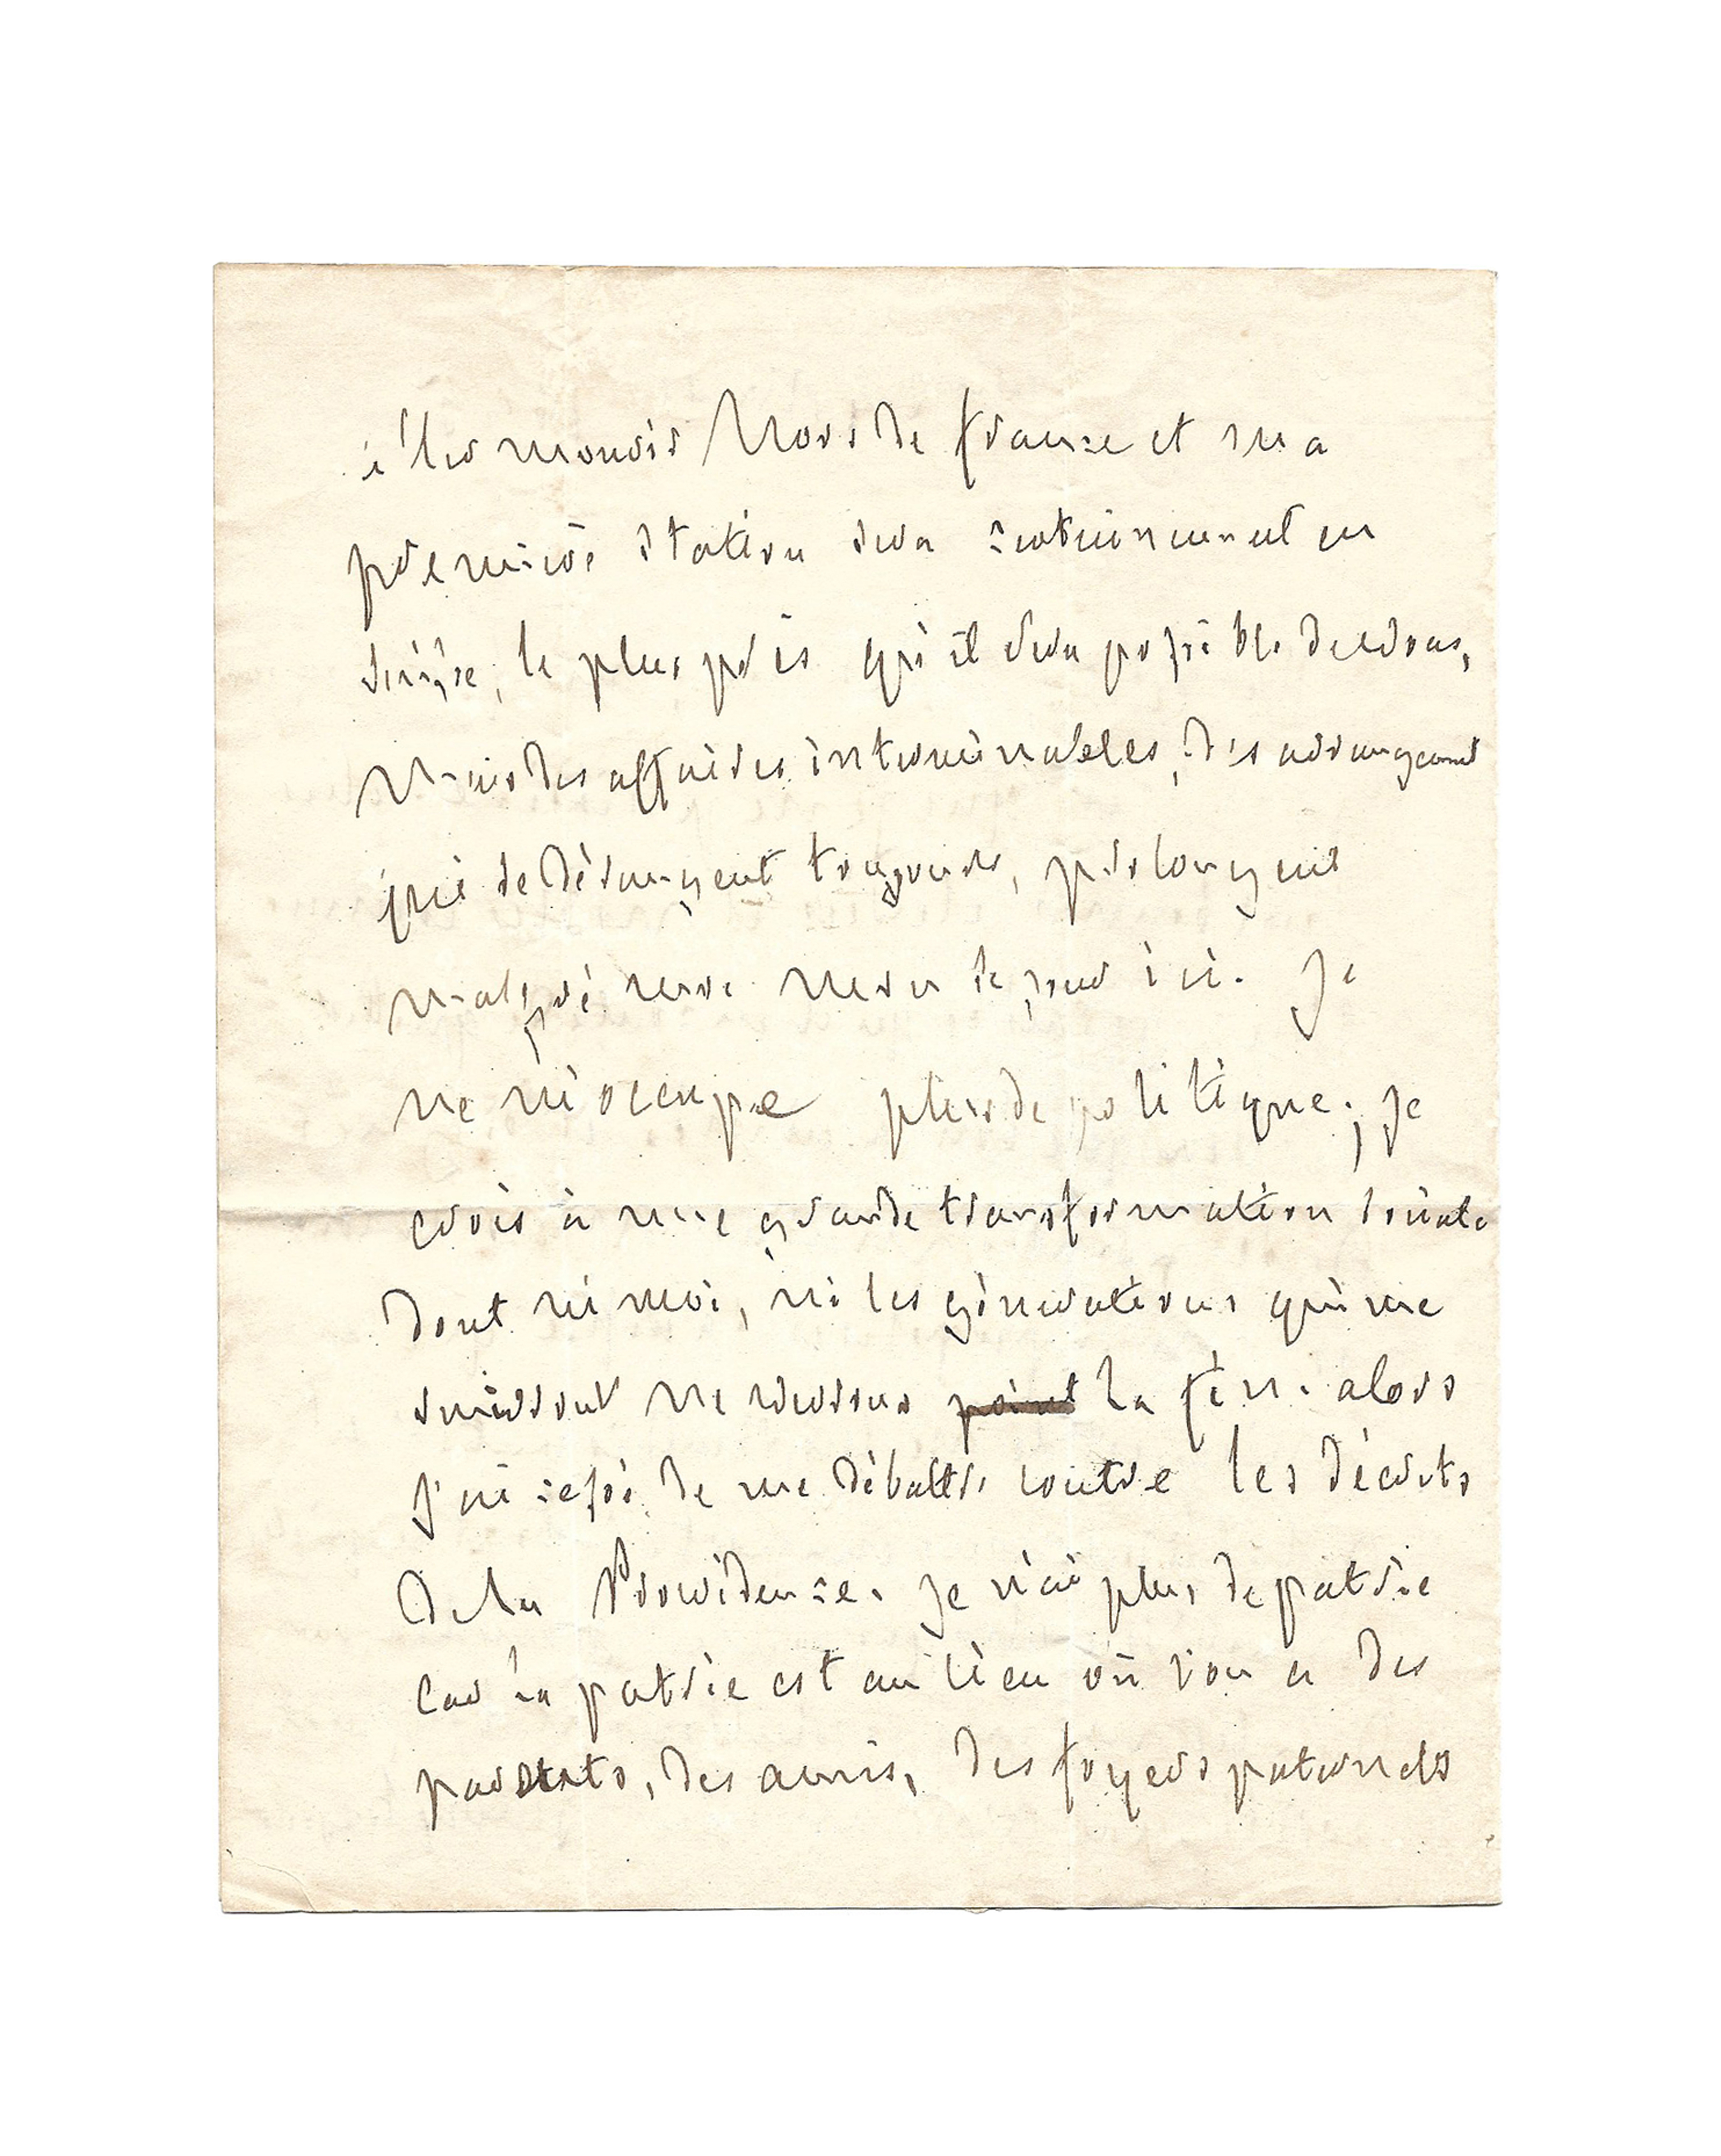 aller mourir hors de france et ma
première station sera certainement en
Suisse, le plus près qu'il sera possible de vous,
Mais des affaires interminables, des arrangemens
qui se dérangent toujours, prolongent
malgré moi mon séjour ici. Je
ne m'occupe plus de politique ; je
crois à une grande transformation sociale
dont ni moi, ni les générations qui me
suivront ne verrons point la fin. alors
j'ai cessé de me débattre contre les décrets
De la Providence. Je n'ai plus de patrie
car la patrie est au lieu où l'on a des
parents, des amis, des foyers paternels